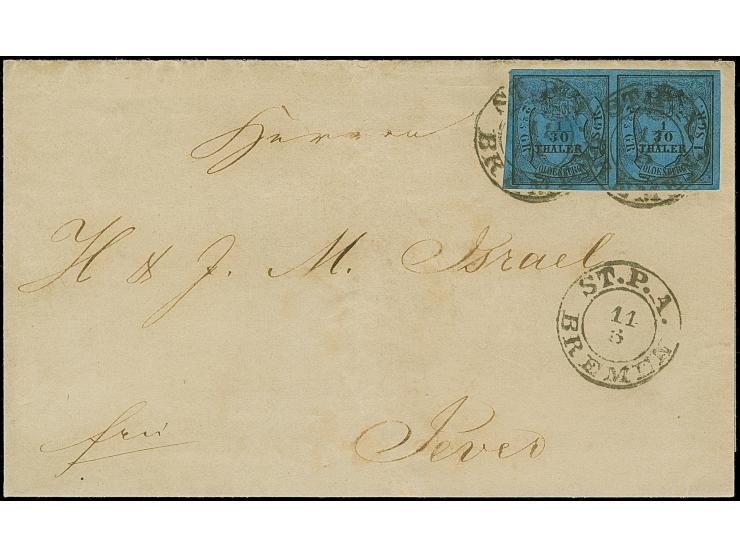 1
30
THALER
OLDENBURG
1
30
THALER
OLDENBURG
Herren
H & J. M. Israel
ST. P. A.
11
6
BREMEN
frei
Jever